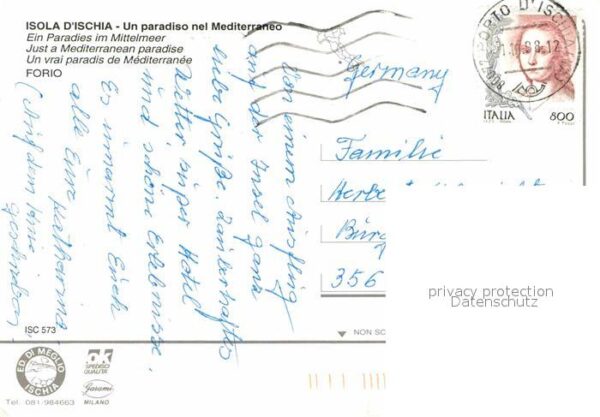 ISOLA D'ISCHIA - Un paradiso nel Mediterraneo
Ein Paradies im Mittelmeer
Just a Mediterranean paradise
Un vrai paradis de Méditerranée
FORIO
Von einem Ausflug
auf der Insel ganz
liebe Grüße. Zauberhaftes
Wetter, super Hotel
und schöne Erlebnisse.
Es umarmt Euch
alle Eure Katharina
(Auf dem Knie
geschrieben)
Germany
Familie
356
PORTO D'ISCHIA
ITALIA 800
privacy protection
Datenschutz
ISC 573
NON SC
ED. DI MEGLIO
ISCHIA
Tel. 081-984663
ok
SPEDISCI
QUALITÀ
Garami
MILANO